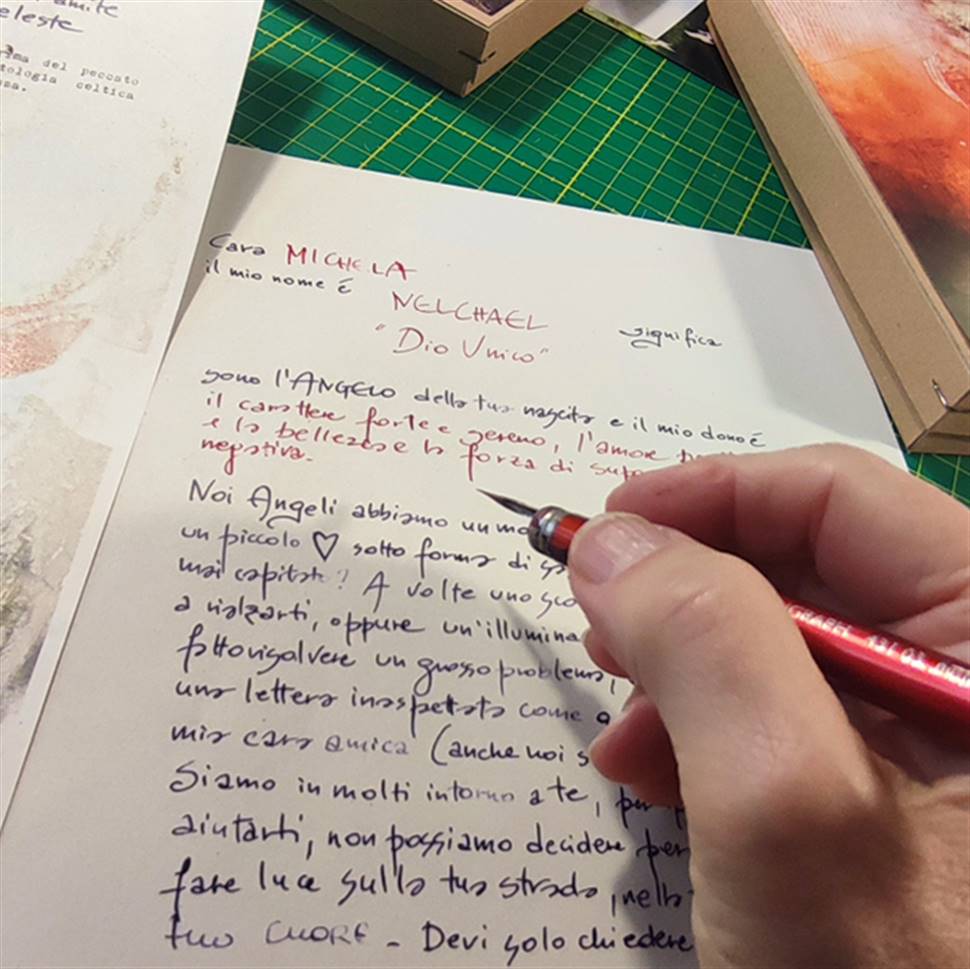 amite
celeste
del peccato
celtica
Cara MICHELA
il mio nome é
NELCHAEL
"Dio Unico"
significa
sono l'ANGELO della tua nascita e il mio dono é
il carattere forte e sereno, l'amore
e la bellezza e la forza di
negativa.
Noi Angeli abbiamo un
un piccolo ♡ sotto forma di
mai capitato? A volte uno
a rialzarti, oppure un'illumina
fatto risolvere un grosso problema,
una lettera inaspettata come
mia cara amica (anche noi s
Siamo in molti intorno a te, per
aiutarti, non possiamo decidere per
fare luce sulla tua strada, nella
tuo CUORE - Devi solo chiedere